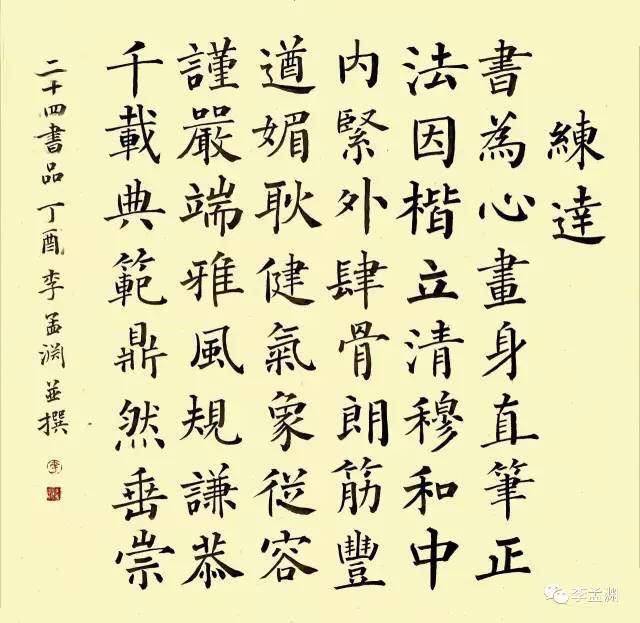 練達
書為心畫身直筆正
法因楷立清穆和中
内緊外肆骨朗筋豐
遒媚耿健氣象從容
謹嚴端雅風規謙恭
千載典範鼎然垂崇
二十四書品丁酉李孟渊並撰
李孟渊